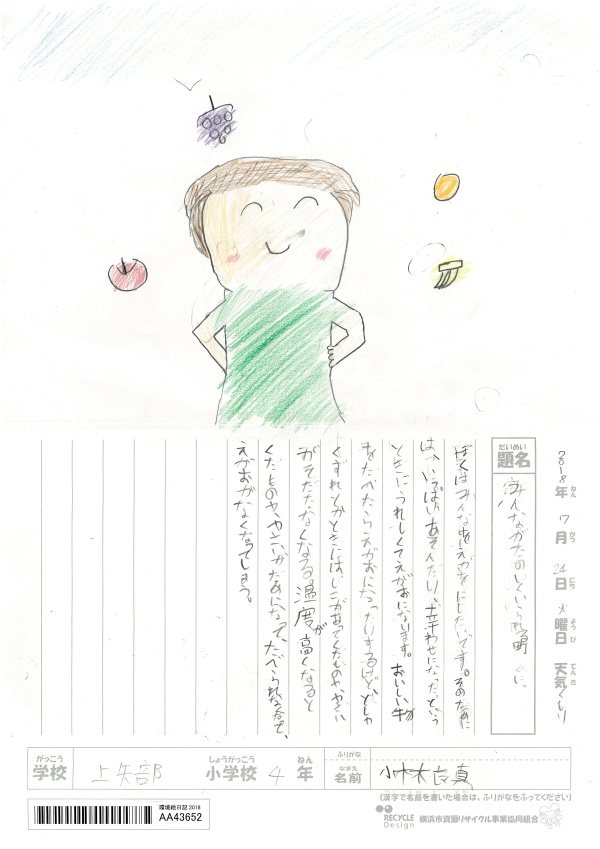 2018年 7月 24日 火曜日 天気 くもり
ねん がつ にち ようび てんき
だいめい
題名
みんながたのしくいられる町に。
ぼくはみんなをえがおにしたいです。そのために
は、いっぱいあそんだり、幸わせになったという
ときにうれしくてえがおになります。おいしい物
をたべたらえがおになったりするけど、どしゃ
くずれとかどきにはじこがあってくだものや、やさい
がそだたなくなる。温度が高くなると
くだものや、やさいがだめになって、たべられなくなって、
えがおがなくなってしまう。
がっこう
学校
上矢部
しょうがっこう
小学校
4
ねん
年
ふりがな
なまえ
名前
良真
(漢字で名前を書いた場合は、ふりがなをふってください)
環境絵日記 2018
AA43652
RECYCLE Design
横浜市資源リサイクル事業協同組合